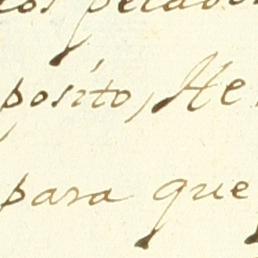 posito, He
para que